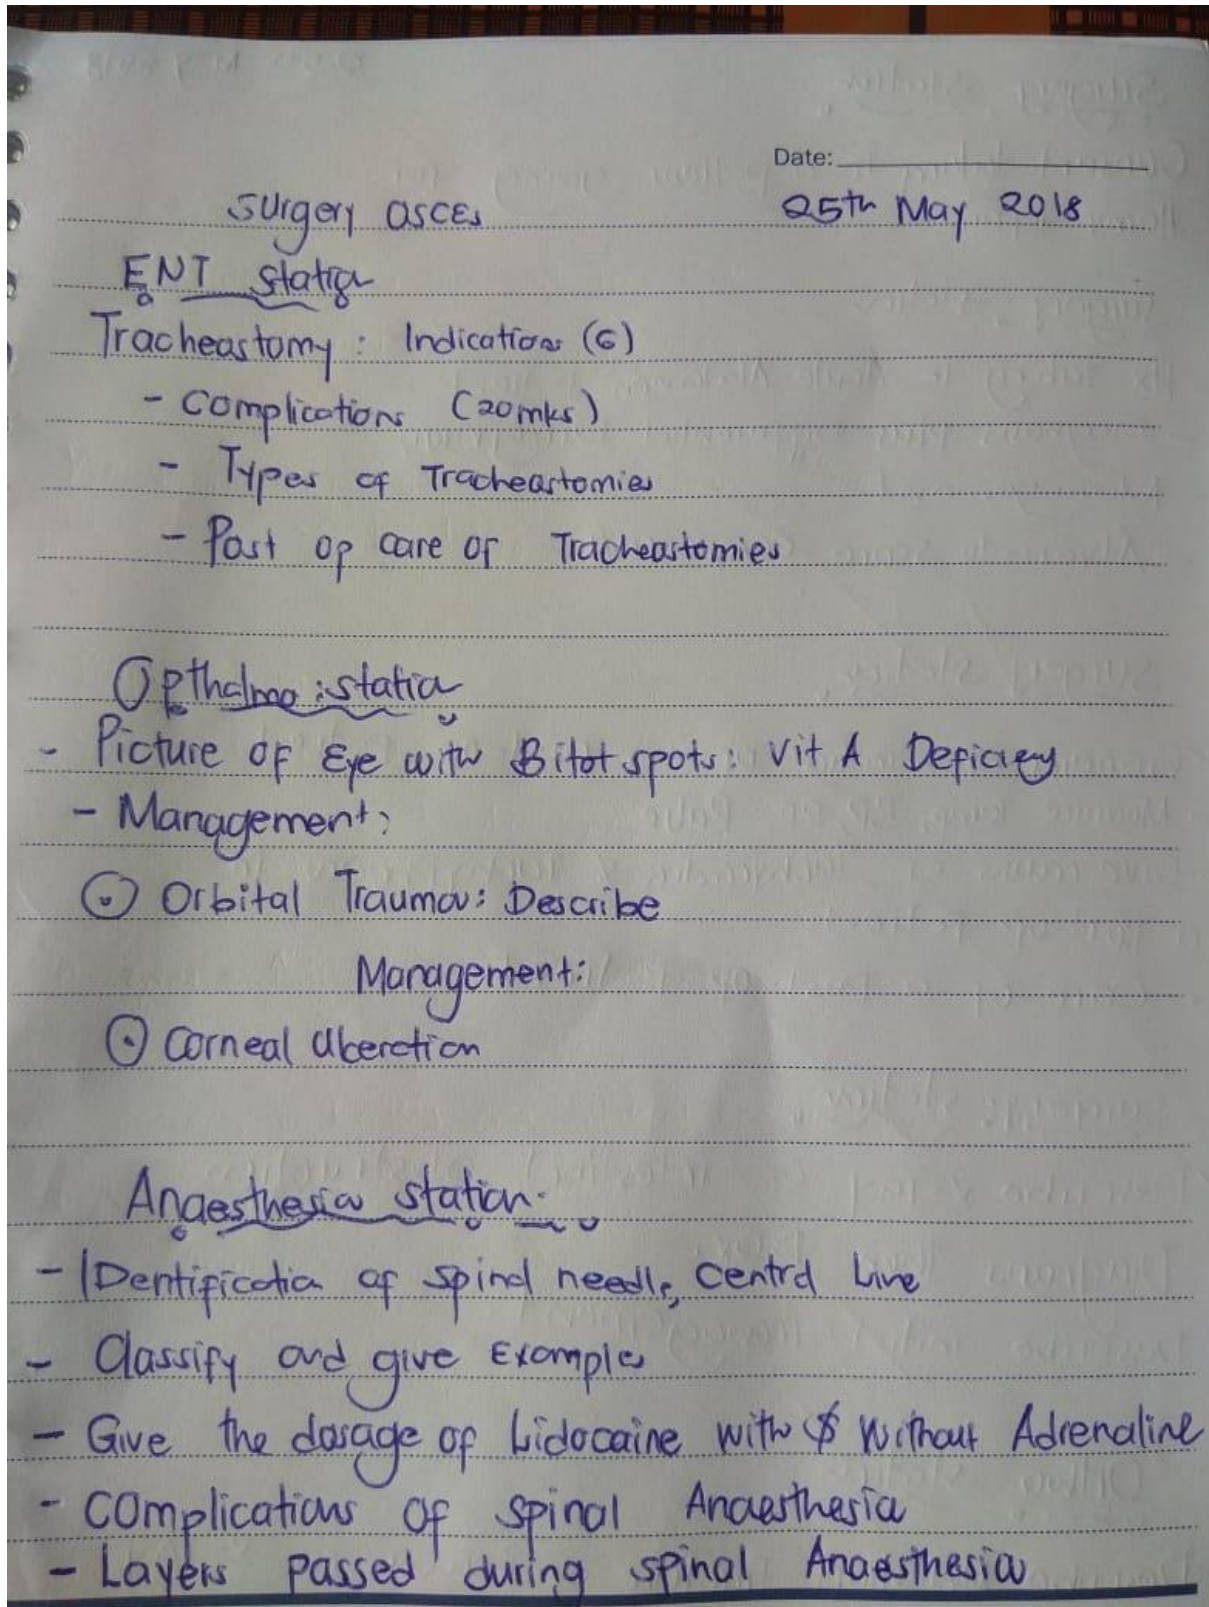 Date:
Surgery OSCEs 25th May 2018
ENT station
Tracheastomy : Indications (6)
- Complications (20mks)
- Types of Tracheastomies
- Post op care of Tracheastomies
Opthalmo : station
- Picture of Eye with Bitot spots: Vit A Deficiency
- Management:
⊙ Orbital Trauma: Describe
Management:
⊙ Corneal Ulceration
Anaesthesia station.
- IDentification of spinal needle, Central Line
- Classify and give Examples
- Give the dosage of Lidocaine with $ Without Adrenaline
- Complications of spinal Anaesthesia
- Layers passed during spinal Anaesthesia